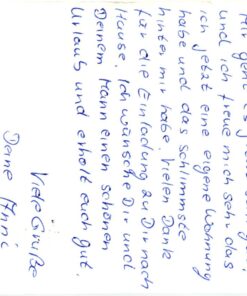 und ich freue mich sehr das
ich jetzt eine eigene Wohnung
habe und das schlimmste
hinter mir habe. Vielen Dank
für die Einladung zu Dir nach
Hause. Ich wünsche Dir und
Deinem Mann einen schönen
Urlaub und erholt euch gut.
Viele Grüße
Deine Anni